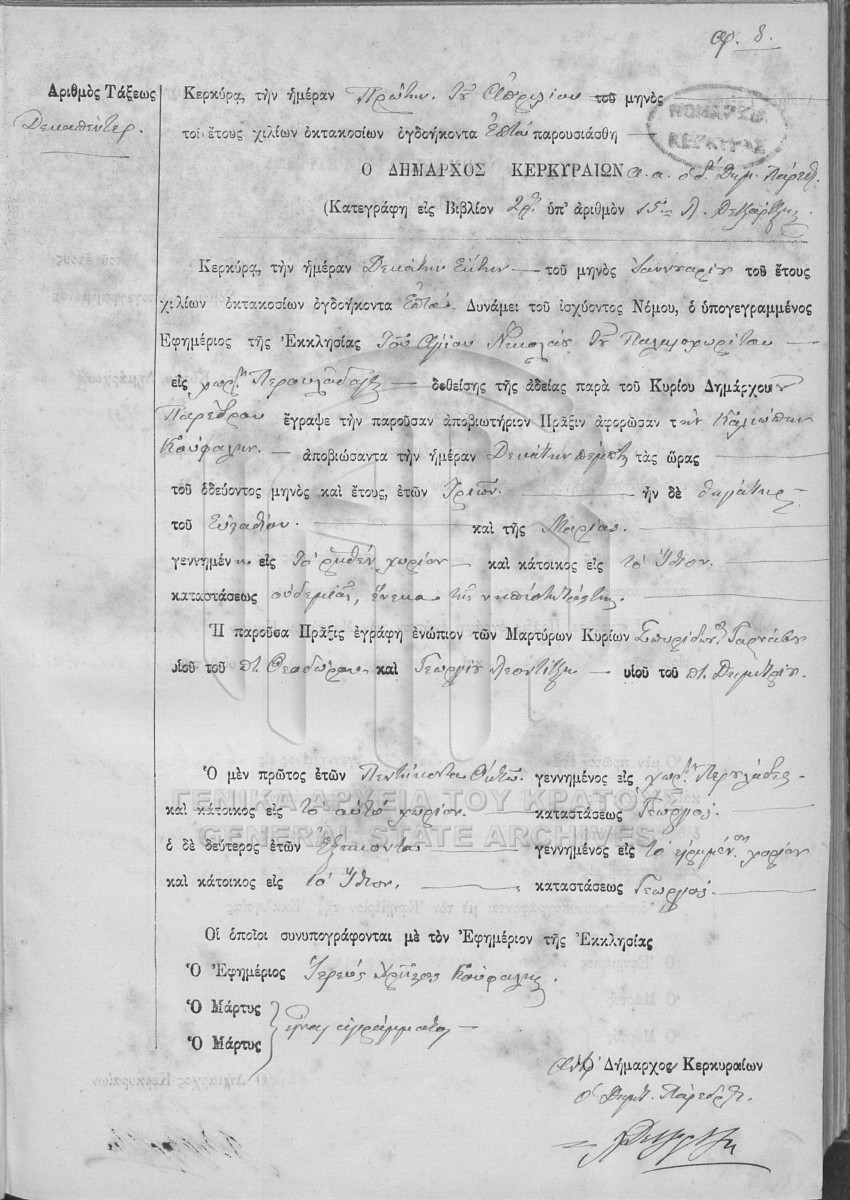 αρ. 8.
Ἀριθμὸς Τάξεως
Δεκαπέντε.
Κερκύρᾳ, τὴν ἡμέραν Πρώτην τοῦ Ἀπριλίου τοῦ μηνὸς
τοῦ ἔτους χιλίων ὀκτακοσίων ὀγδοήκοντα Ἑπτά παρουσιάσθη
ΝΟΜΑΡΧΙΑ
ΚΕΡΚΥΡΑΣ
Ο ΔΗΜΑΡΧΟΣ ΚΕΡΚΥΡΑΙΩΝ α. α. ὁ Δημ. Πάρεδ.
(Κατεγράφη εἰς Βιβλίον ὑπ' ἀριθμὸν 15
Κερκύρᾳ, τὴν ἡμέραν Δεκάτην Ἕκτην τοῦ μηνὸς Ἰαννουαρίου τοῦ ἔτους
χιλίων ὀκτακοσίων ὀγδοήκοντα Ἑπτά. Δυνάμει τοῦ ἰσχύοντος Νόμου, ὁ ὑπογεγραμμένος
Ἐφημέριος τῆς Ἐκκλησίας Τοῦ Ἁγίου Νικολάου τοῦ Παλαιοχωρίτου
εἰς χωρ. Περουλάδαις δοθείσης τῆς ἀδείας παρὰ τοῦ Κυρίου Δημάρχου
Παρέδρου ἔγραψε τὴν παροῦσαν ἀποβιωτήριον Πρᾶξιν ἀφορῶσαν τὴν Καλιώπην
Κούφαλην. ἀποβιώσαντα τὴν ἡμέραν Δεκάτην πέμπτ τὰς ὥρας
τοῦ ὁδεύοντος μηνὸς καὶ ἔτους, ἐτῶν Τριῶν. ἦν δὲ θηγάτηρ
τοῦ Εὐσταθίου. καὶ τῆς Μαρίας.
γεννημένη εἰς Τὸ ρηθὲν χωρίον καὶ κάτοικος εἰς τὸ Ἴδιον.
καταστάσεως οὐδεμίας, ἕνεκα τῆς νηπιότητος της.
Ἡ παροῦσα Πρᾶξις ἐγράφη ἐνώπιον τῶν Μαρτύρων Κυρίων Σπυρίδων
υἱοῦ τοῦ πτ. Θεοδώρου καὶ Γεωργίου Λεοντίτζη υἱοῦ τοῦ πτ. Δημητρίου.
Ὁ μὲν πρῶτος ἐτῶν Πεντήκοντα Ὀκτώ γεννημένος εἰς χωρ. Περουλάδες
καὶ κάτοικος εἰς τὸ αὐτὸ χωρίον. καταστάσεως Γεωργός.
ΓΕΝΙΚΑ ΑΡΧΕΙΑ ΤΟΥ ΚΡΑΤΟΥΣ
GENERAL STATE ARCHIVES
ὁ δὲ δεύτερος ἐτῶν Ἑξήκοντα γεννημένος εἰς τὸ εἰρημέν. χωρίον
καὶ κάτοικος εἰς τὸ Ἴδιον, καταστάσεως Γεωργός.
Οἱ ὁποῖοι συνυπογράφονται μὲ τὸν Ἐφημέριον τῆς Ἐκκλησίας
Ὁ Ἐφημέριος Ἱερεύς Κούφαλης.
Ὁ Μάρτυς
εἶναι ἀγράμματοι
Ὁ Μάρτυς
Ὁ Δήμαρχος Κερκυραίων
ὁ Δημτ. Πάρεδρος.